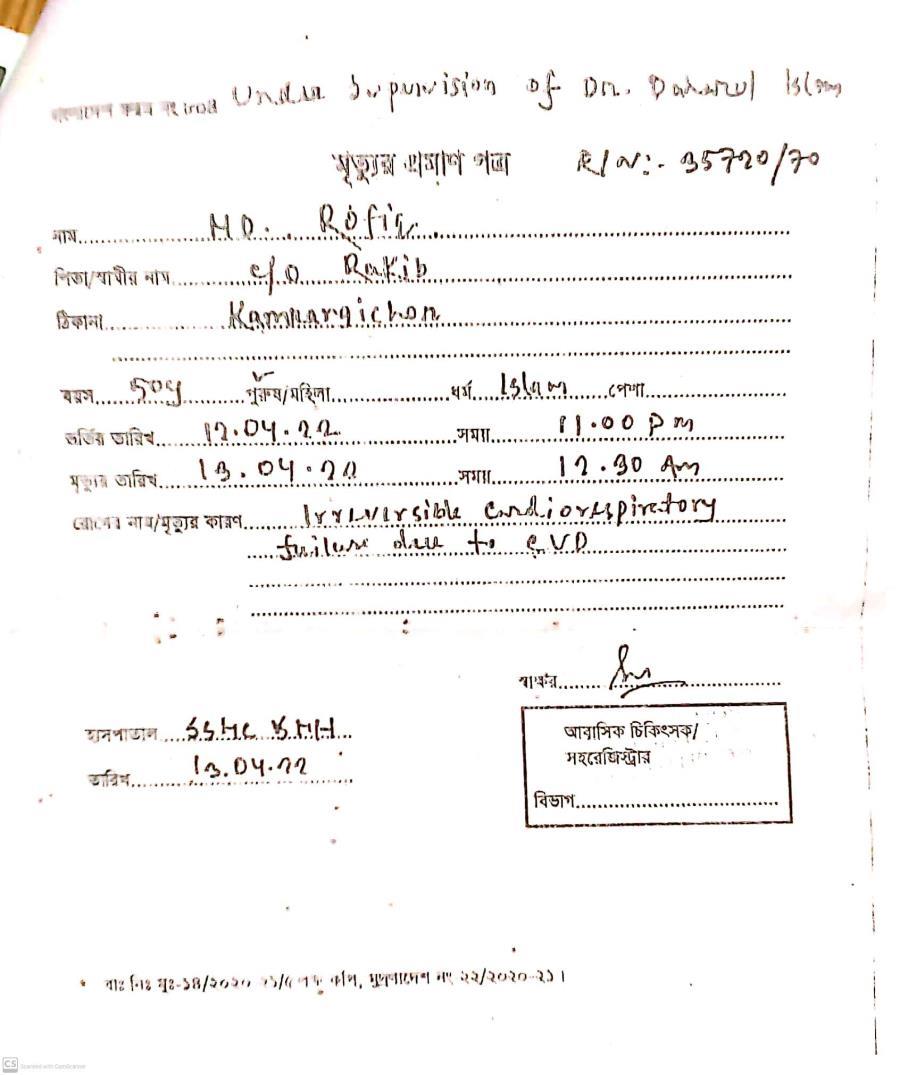 বাংলাদেশ ফরম নং Under Supervision of Dr. Daharul Islam
মৃত্যুর প্রমাণ পত্র R/N:- 35720/70
নাম MD. Rofiq
পিতা/স্বামীর নাম c/o Rakib
ঠিকানা Kamrangichon
বয়স 50y পুরুষ/মহিলা ধর্ম Islam পেশা
ভর্তির তারিখ 12.04.22 সময় 11.00 pm
মৃত্যুর তারিখ 13.04.22 সময় 12.30 Am
রোগের নাম/মৃত্যুর কারণ Irreversible cardiorespiretory
failure due to CVD
স্বাক্ষর
হাসপাতাল SSMC & MH
আবাসিক চিকিৎসক/
সহরেজিস্ট্রার
তারিখ 13.04.22
বিভাগ
বাঃ নিঃ মুঃ-১৪/২০২০ কপি, মুদ্রণাদেশ নং ২২/২০২০-২১।
CS Scanned with CamScanner